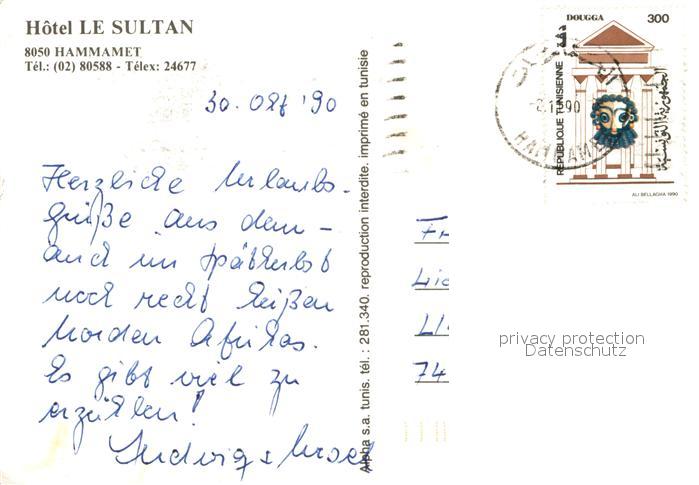 Hôtel LE SULTAN
8050 HAMMAMET
Tél.: (02) 80588 - Télex: 24677
30. Okt '90
Herzliche Urlaubs-
grüße aus dem –
auch im Spätherbst
noch recht heißen
Norden Afrikas.
Es gibt viel zu
erzählen!
Ludwig +
Alpha s.a. tunis. tél. : 281.340. reproduction interdite. imprimé en tunisie
DOUGGA 300
دقة
REPUBLIQUE TUNISIENNE
الجمهورية التونسية
ALI BELLAGHA 1990
90
HAMMAMET
Li
74
privacy protection
Datenschutz